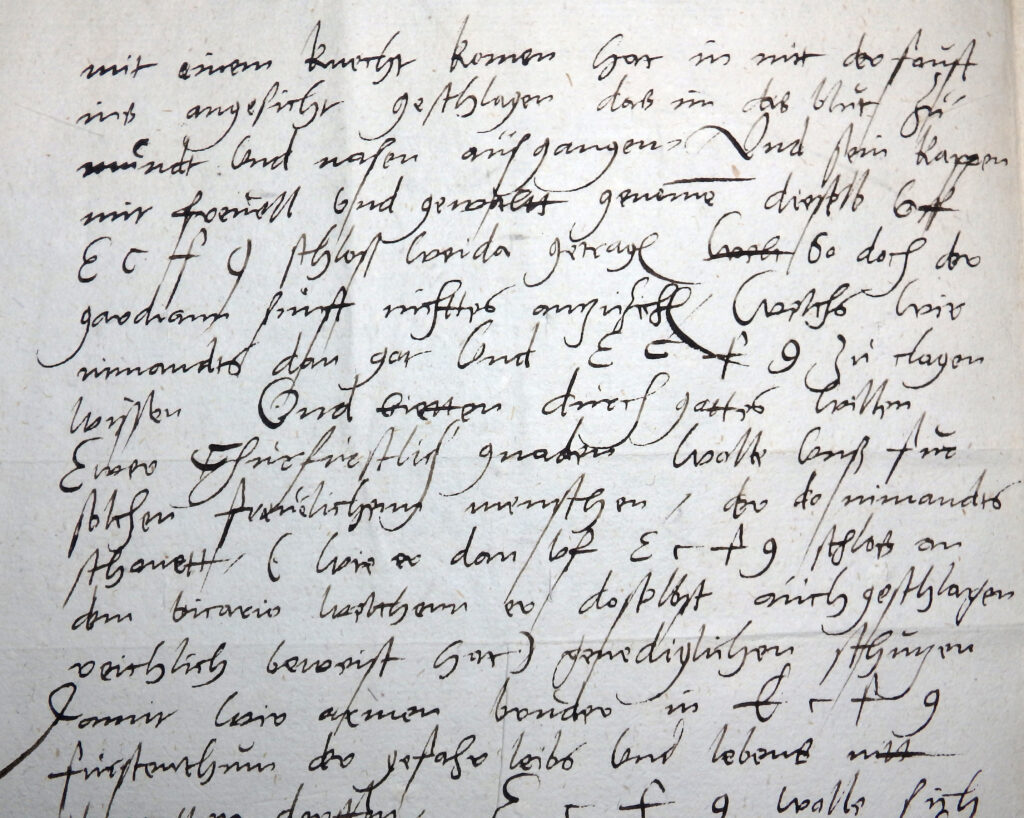 mit einem knecht komen hat in mit der faust
ins angesicht geschlagen das im das blut zu
mundt und nasen ausgangen Und sein kappen
mit freuell und gewallt genome dieselb uff
E c f g schloß weida getragen So doch der
gardiann sunst nichttes anzuzihen / Welchs wir
nimandts dan gar und E c f g zu clagen
wyssen Und bietten durch gottes willen
Ewer Churfurstlich gnaden wolle unß fur
solchen freuelichenn menschen / der do nimandts
schonett / ( wie er dan uf E c f g schlos an
dem vicario welchenn er doselbst auch geschlagen
reichlich beweist hat ) genediglichen schutzen
Damit wir armen bruder in E c f g
furstenthum der gefahr leibs und lebens nitt
E c f g wolle sich